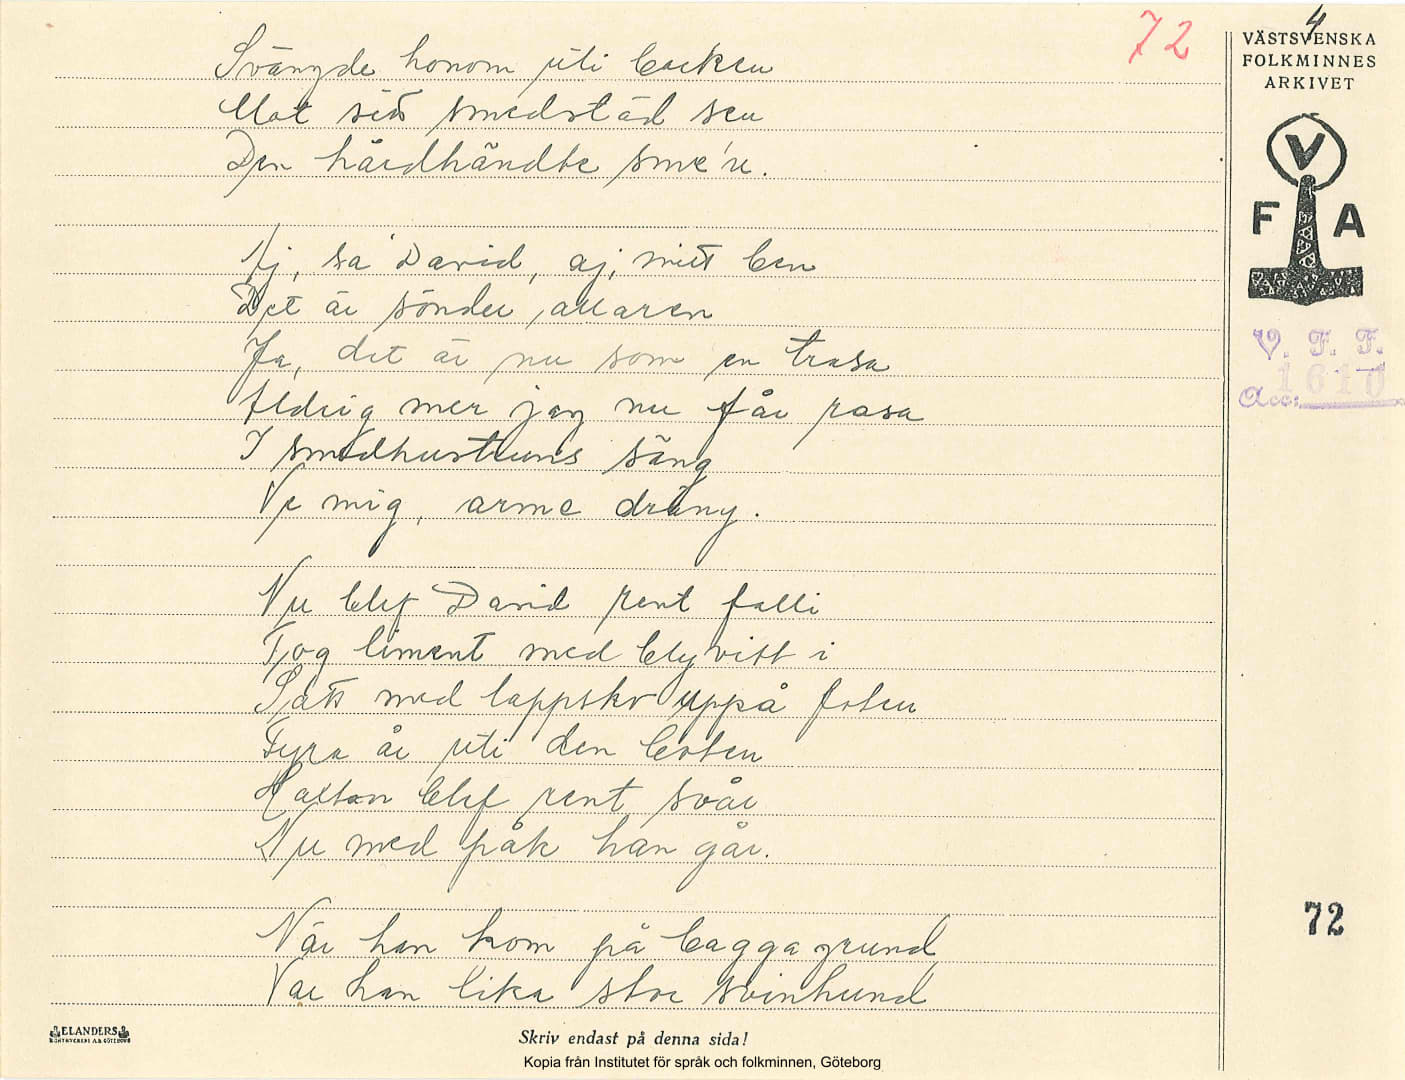 72
4
VÄSTSVENSKA
FOLKMINNES
ARKIVET
V
F A
V. F. F.
Acc: 1610
Svängde honom uti backen
Mot sitt smedstäd sen
Den hårdhändte sme'n.
Aj, sa' David, aj, mitt ben
Det är sönder, allaren
Ja, det är nu som en trasa
Aldrig mer jag nu får rasa
I smedhustruns säng
Ve mig, arme dräng.
Nu blef David rent falli
Tog liment med blyvitt i
Satt med lappsko uppå foten
Fyra år uti den boten
Haltan blef rent svår
Nu med påk han går.
När han kom på bagga grund
Var han lika stor svinhund
72
ELANDERS
Skriv endast på denna sida!
Kopia från Institutet för språk och folkminnen, Göteborg